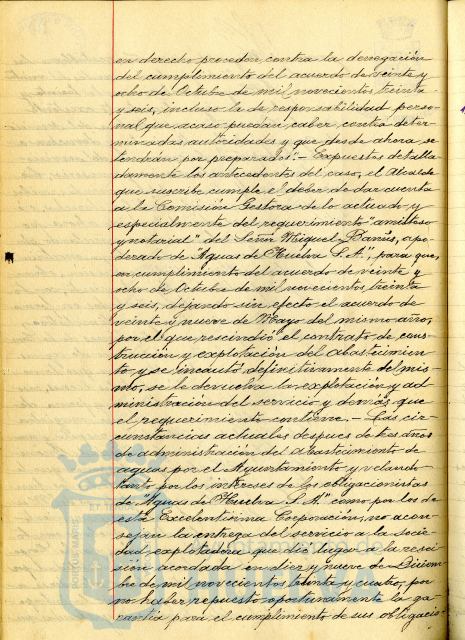 en derecho proceden, contra la denegación
del cumplimiento del acuerdo de veinte y
ocho de Octubre de mil novecientos treinta
y seis, incluso la de responsabilidad perso-
nal que acaso puedan caber contra deter-
minadas autoridades y que desde ahora, se
tendrán por preparados.- Expuestos detalla-
damente los antecedentes del caso, el Alcalde
que suscribe cumple el deber de dar cuenta
a la Comisión Gestora de lo actuado y
especialmente del requerimiento "amistoso
y notarial" del Señor Miguel Banús, apo-
derado de "Aguas de Huelva S.A.", para que,
en cumplimiento del acuerdo de veinte y
ocho de Octubre de mil novecientos treinta
y seis, dejando sin efecto el acuerdo de
veinte y nueve de Mayo del mismo año,
por el que rescindió el contrato de cons-
trucción y explotación del abastecimien-
to y se incautó definitivamente del mis-
mo, se le devuelva la explotación y ad-
ministración del servicio y demás que
el requerimiento contiene.- Las cir-
cunstancias actuales despues de tres años
de administración del abastecimiento de
aguas por el Ayuntamiento y velando
tanto por los intereses de los obligacionistas
de "Aguas de Huelva S.A." como por los de
esta Excelentísima Corporación, no acon-
sejan la entrega del servicio a la socie-
dad explotadora que dió lugar a la resci-
sión acordada en diez y nueve de Diciem-
bre de mil novecientos treinta y cuatro, por
no haber repuesto oportunamente la ga-
rantia para el cumplimiento de sus obligacio-
PORTUS MARIS